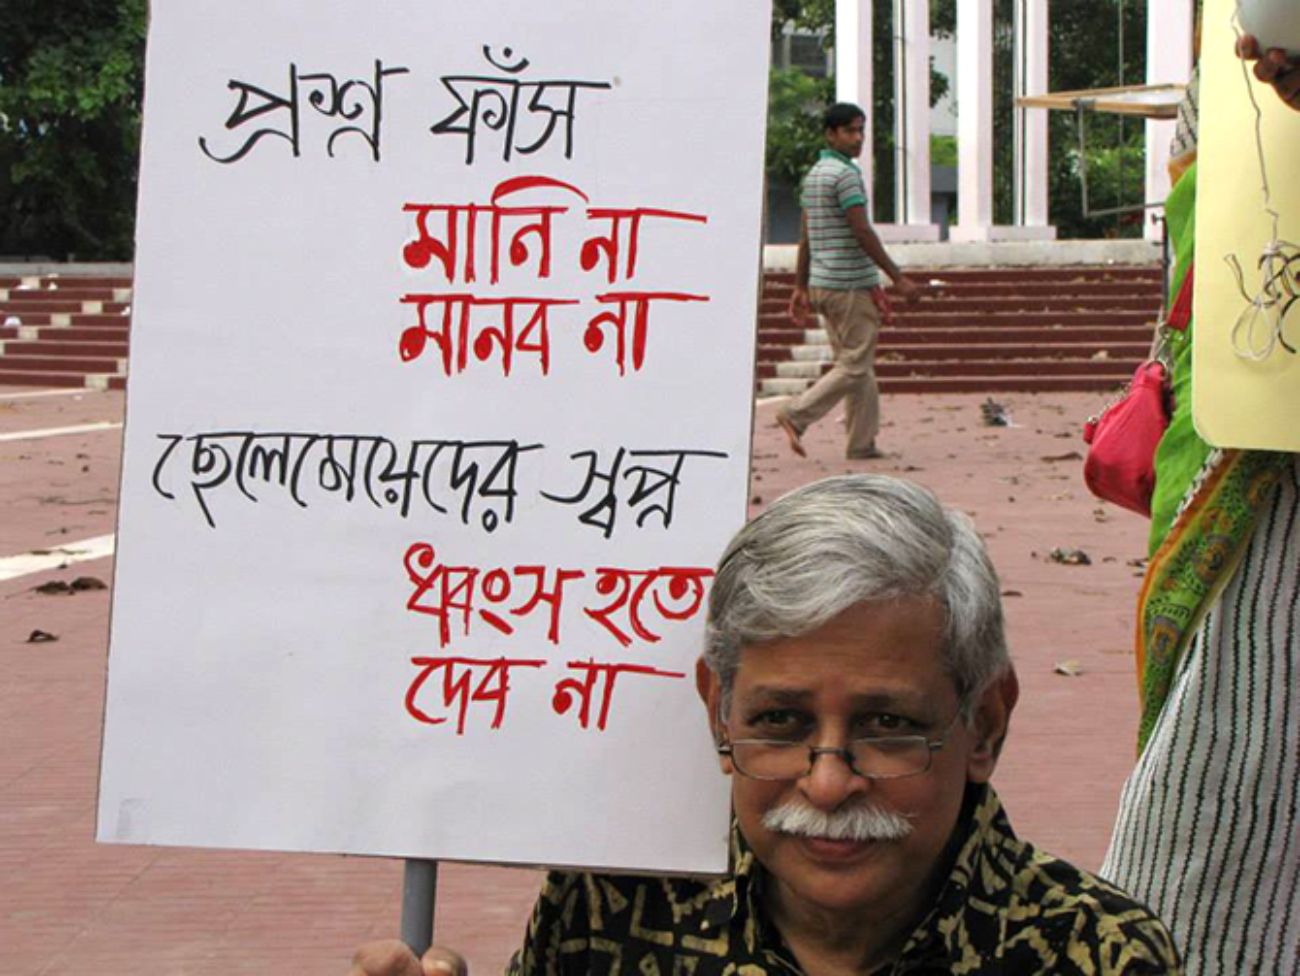 প্রশ্ন ফাঁস
মানি না
মানব না
ছেলেমেয়েদের স্বপ্ন
ধ্বংস হতে
দেব না